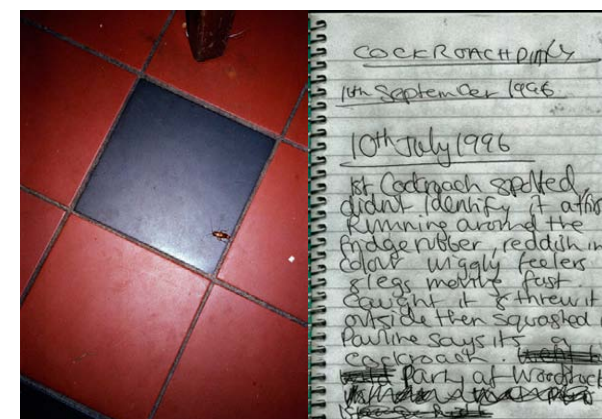 COCKROACH DIARY
14th September 1996
10th July 1996
1st Cockroach spotted,
didnt identify it at first
Running around the
fridge rubber, reddish in
colour wiggly feelers
& legs moving fast.
caught it & threw it
outside then squashed i
Pauline says its a
cockroach.
Party at Woodstock